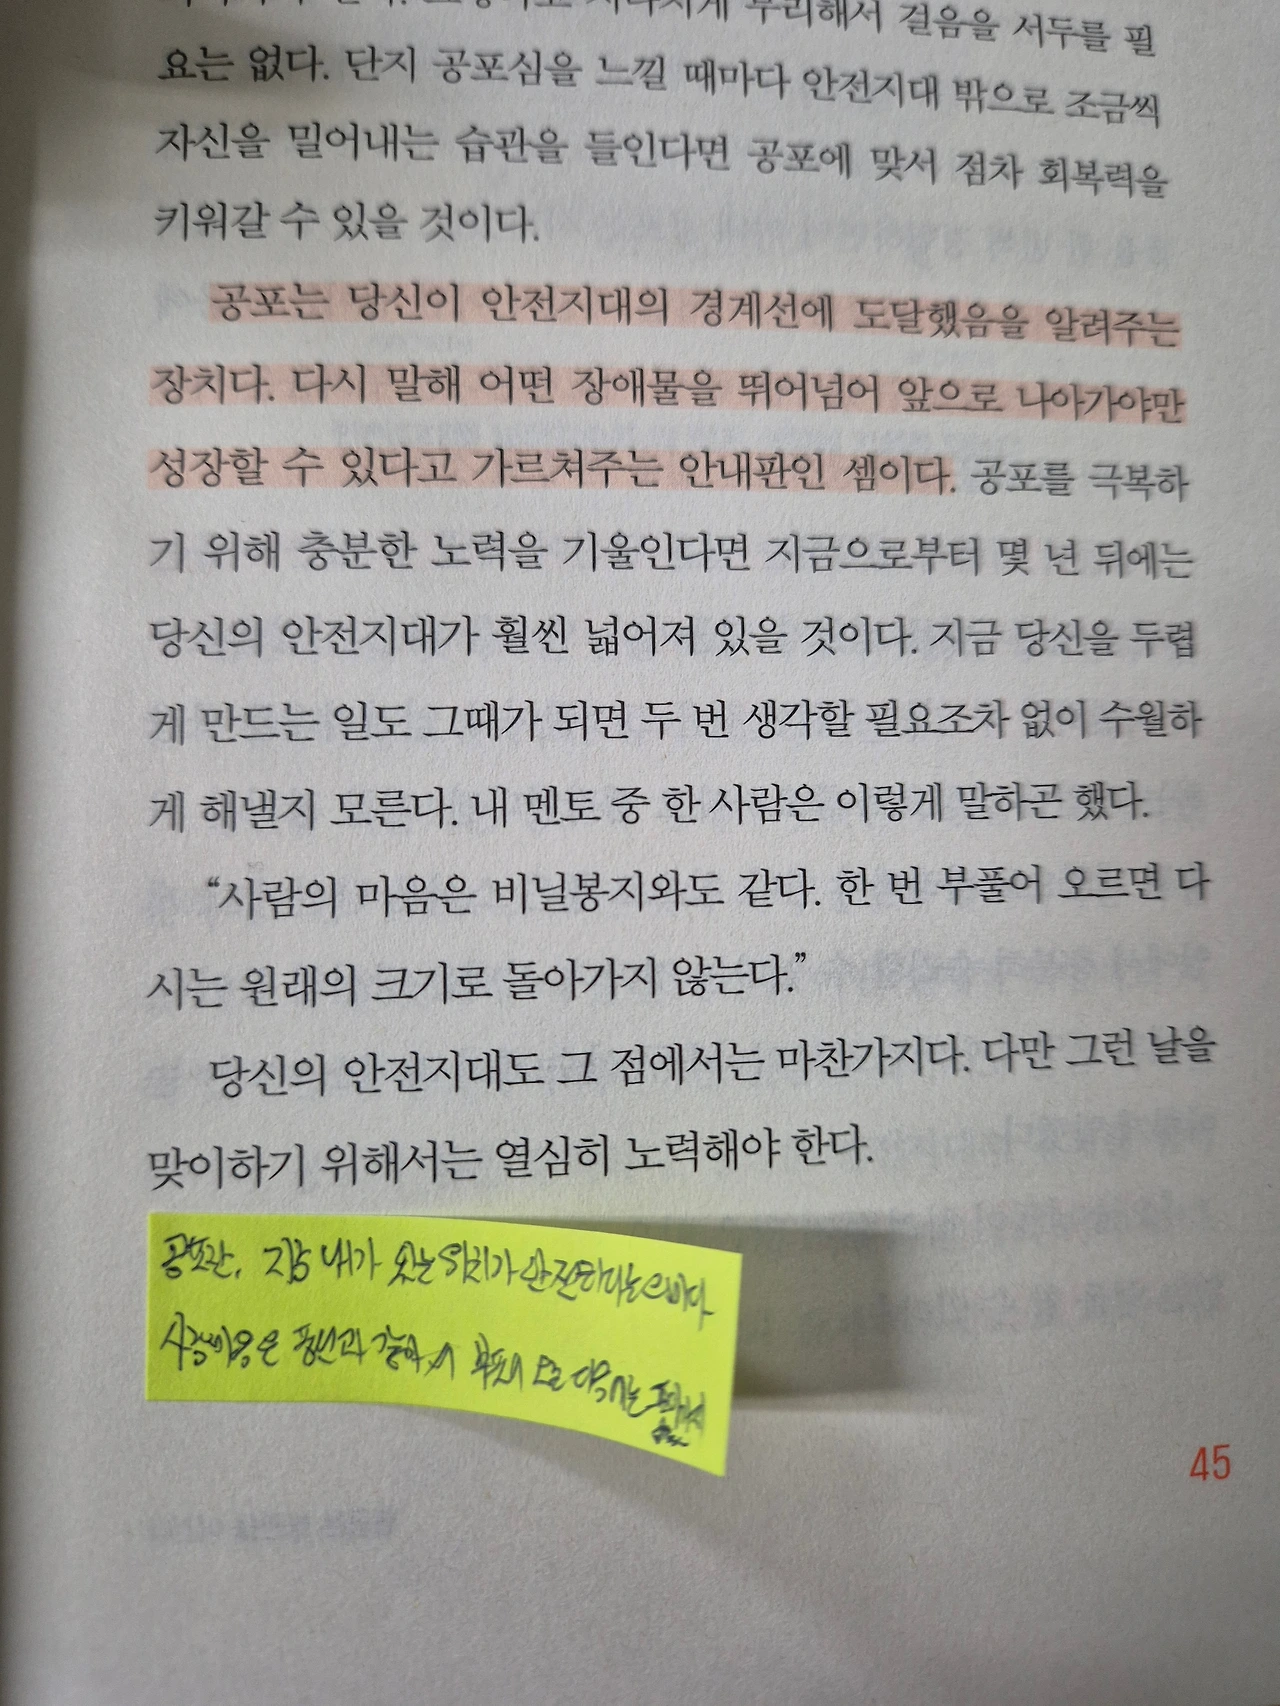 무리해서 걸음을 서두를 필
요는 없다. 단지 공포심을 느낄 때마다 안전지대 밖으로 조금씩
자신을 밀어내는 습관을 들인다면 공포에 맞서 점차 회복력을
키워갈 수 있을 것이다.
공포는 당신이 안전지대의 경계선에 도달했음을 알려주는
장치다. 다시 말해 어떤 장애물을 뛰어넘어 앞으로 나아가야만
성장할 수 있다고 가르쳐주는 안내판인 셈이다. 공포를 극복하
기 위해 충분한 노력을 기울인다면 지금으로부터 몇 년 뒤에는
당신의 안전지대가 훨씬 넓어져 있을 것이다. 지금 당신을 두렵
게 만드는 일도 그때가 되면 두 번 생각할 필요조차 없이 수월하
게 해낼지 모른다. 내 멘토 중 한 사람은 이렇게 말하곤 했다.
“사람의 마음은 비닐봉지와도 같다. 한 번 부풀어 오르면 다
시는 원래의 크기로 돌아가지 않는다.”
당신의 안전지대도 그 점에서는 마찬가지다. 다만 그런 날을
맞이하기 위해서는 열심히 노력해야 한다.
공포란, 지금 내가 있는 위치가 안전하다는
45